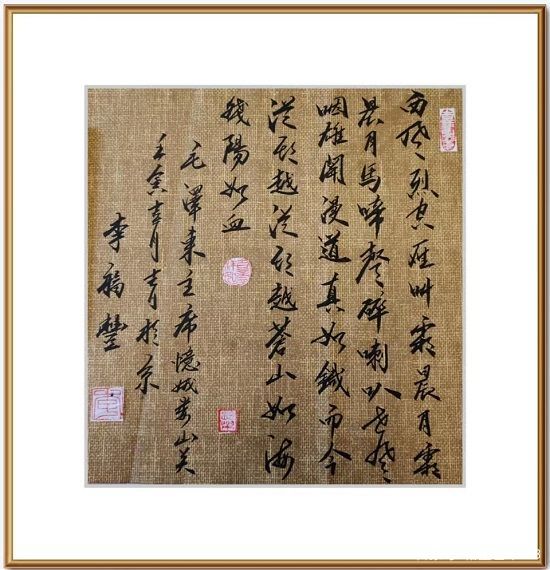 西風烈空雁叫霜晨月霜
晨月馬啼聲碎喇叭聲
咽雄關漫道真如鐵而今
從頭越從頭越蒼山如海
殘陽如血
毛澤東主席憶娥婁山关
壬寅月於京
李福豐